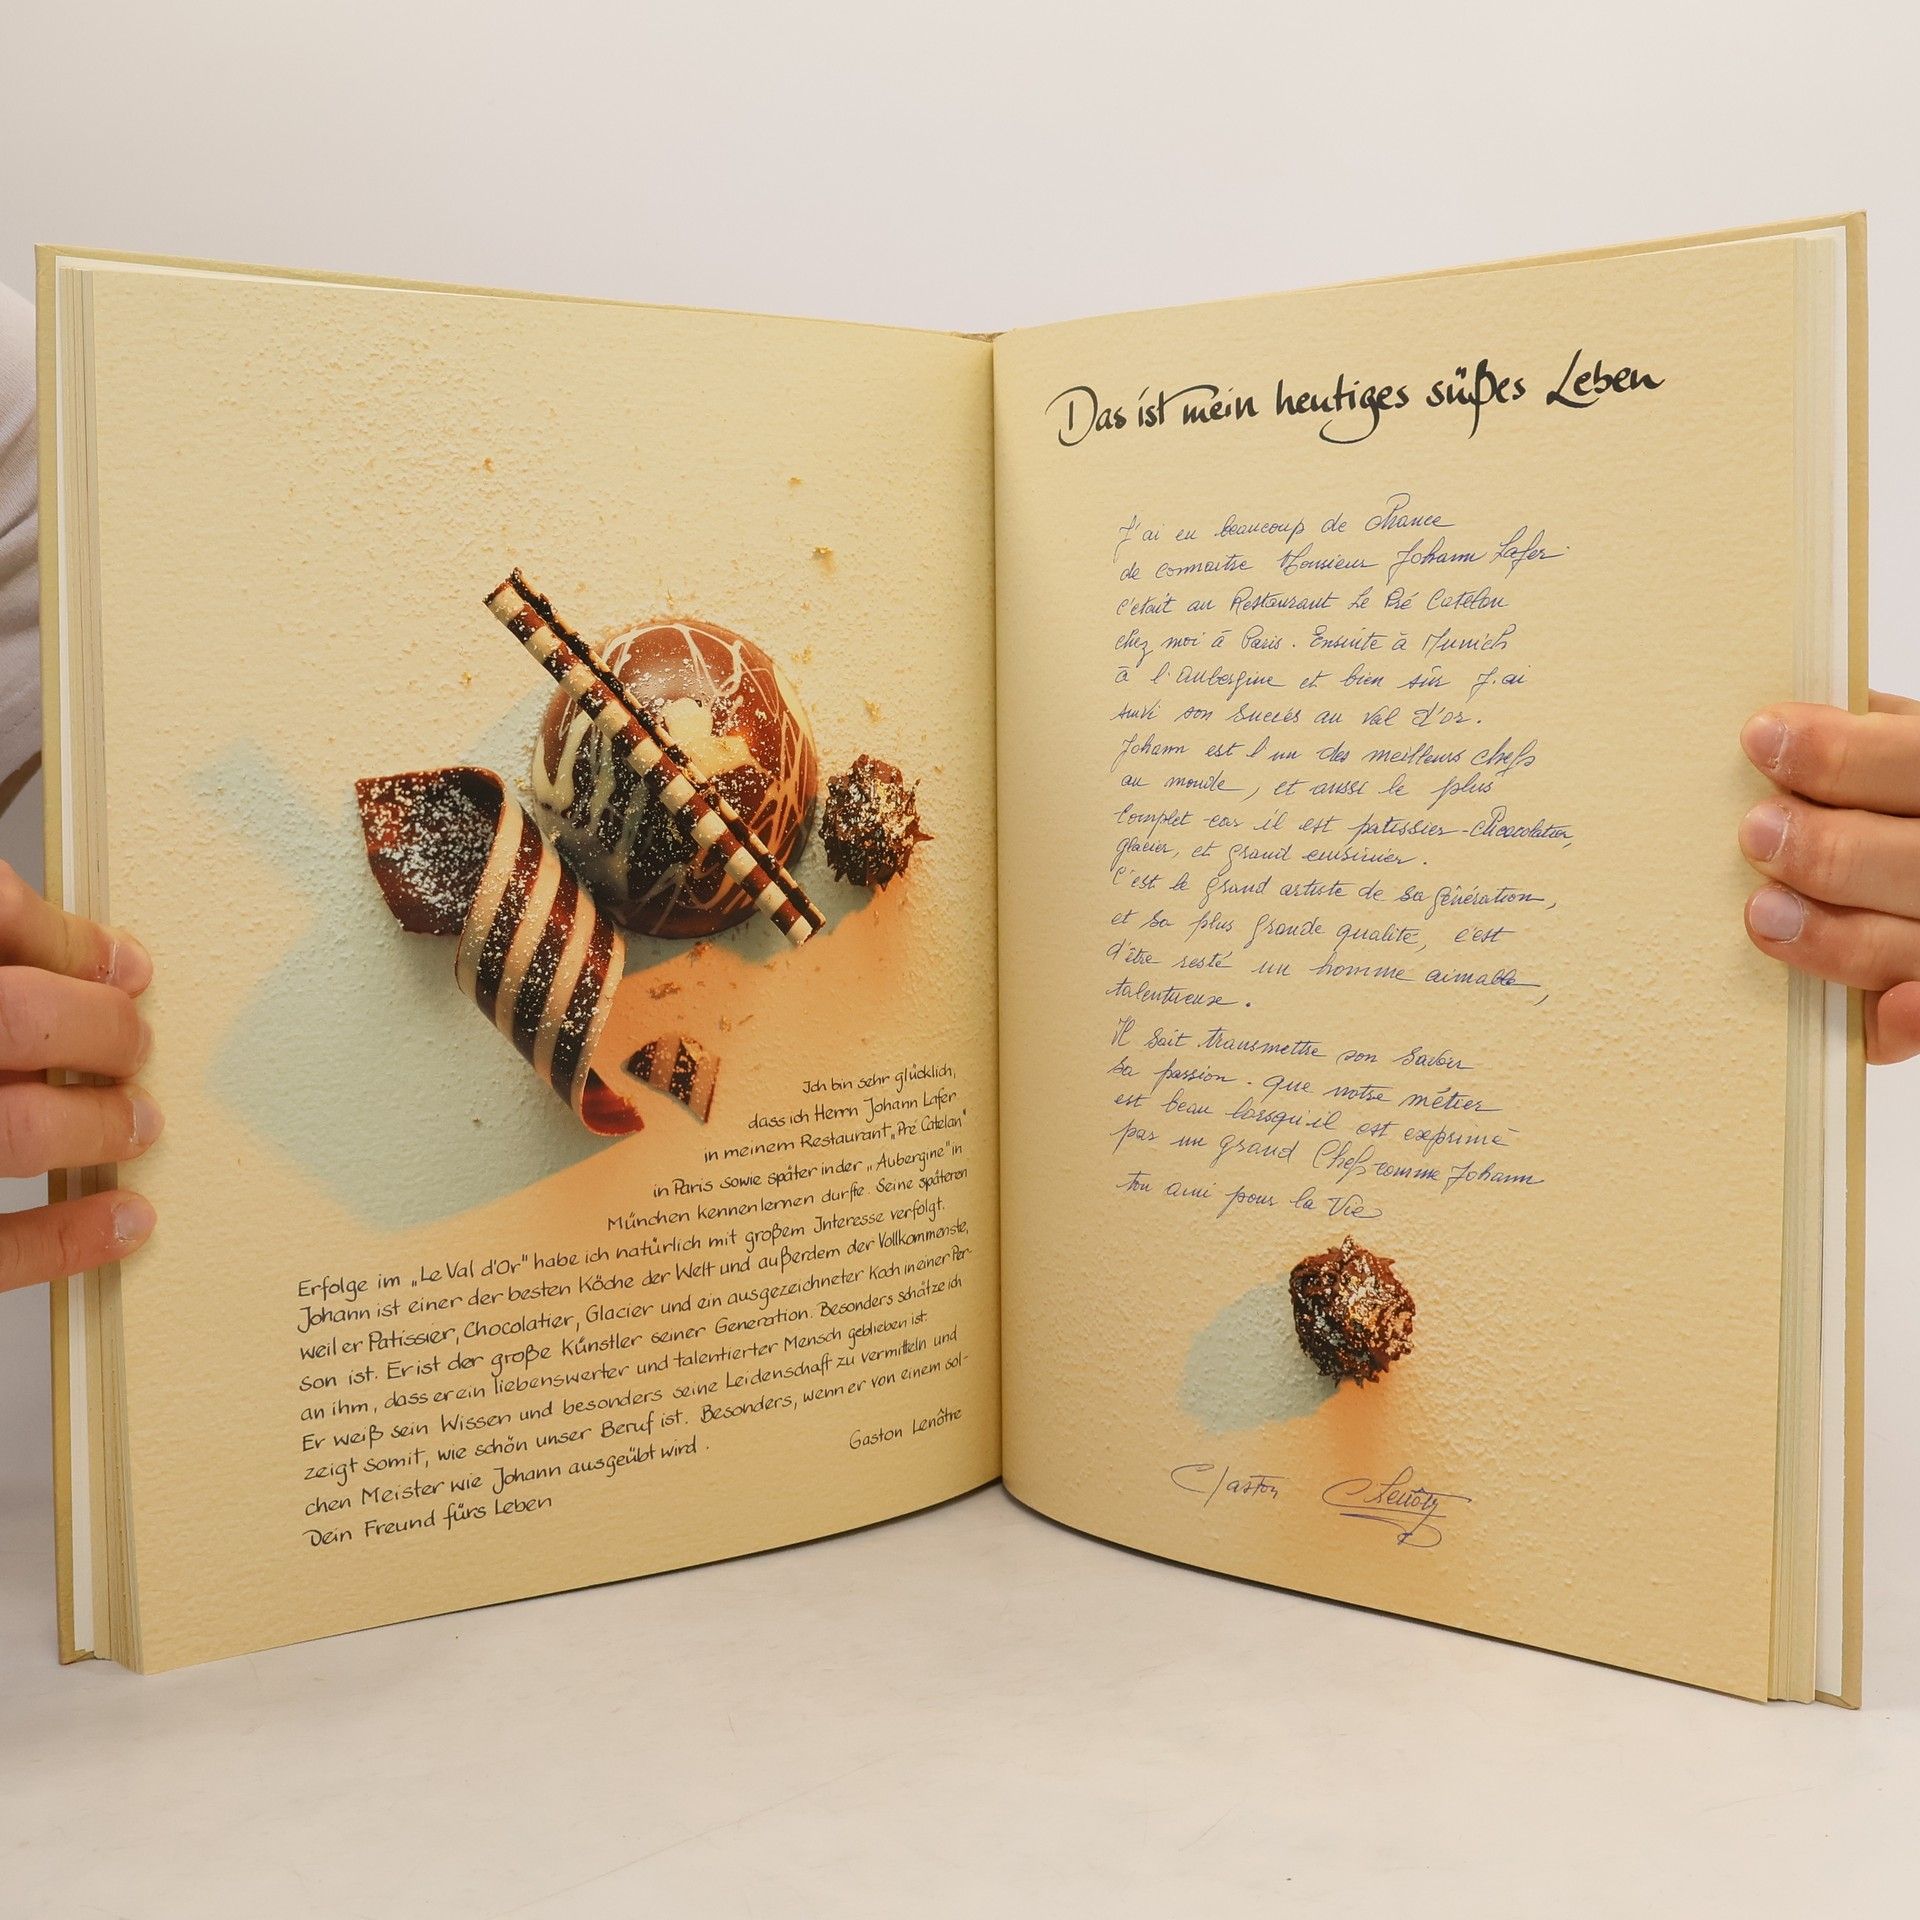 Ich bin sehr glücklich,
dass ich Herrn Johann Lafer
in meinem Restaurant „Pré Catelan"
in Paris sowie später in der „Aubergine" in
München kennenlernen durfte. Seine späteren
Erfolge im „Le Val d'Or" habe ich natürlich mit großem Interesse verfolgt.
Johann ist einer der besten Köche der Welt und außerdem der Vollkommenste,
weil er Patissier, Chocolatier, Glacier und ein ausgezeichneter Koch in einer Per-
son ist. Er ist der große Künstler seiner Generation. Besonders schätze ich
an ihm, dass er ein liebenswerter und talentierter Mensch geblieben ist.
Er weiß sein Wissen und besonders seine Leidenschaft zu vermitteln und
zeigt somit, wie schön unser Beruf ist. Besonders, wenn er von einem sol-
chen Meister wie Johann ausgeübt wird.
Dein Freund fürs Leben
Gaston Lenôtre
Das ist mein heutiges süßes Leben
J'ai eu beaucoup de Chance
de connaitre Monsieur Johann Lafer
c'etait au Restaurant Le Pré Catelan
chez moi à Paris. Ensuite à Munich
à l'Aubergine et bien sûr J'ai
suivi son Succès au Val d'or.
Johann est l'un des meilleurs chefs
au monde, et aussi le plus
Complet car il est patissier-Chocolatier,
glacier, et grand cuisinier.
C'est le grand artiste de sa génération,
et sa plus grande qualité, c'est
d'être resté un homme aimable,
talentueux.
Il Sait transmettre son Savoir
sa passion. que notre métier
est beau lorsqu'il est exprimé
par un grand Chef comme Johann
ton ami pour la Vie
Gaston Lenôtre